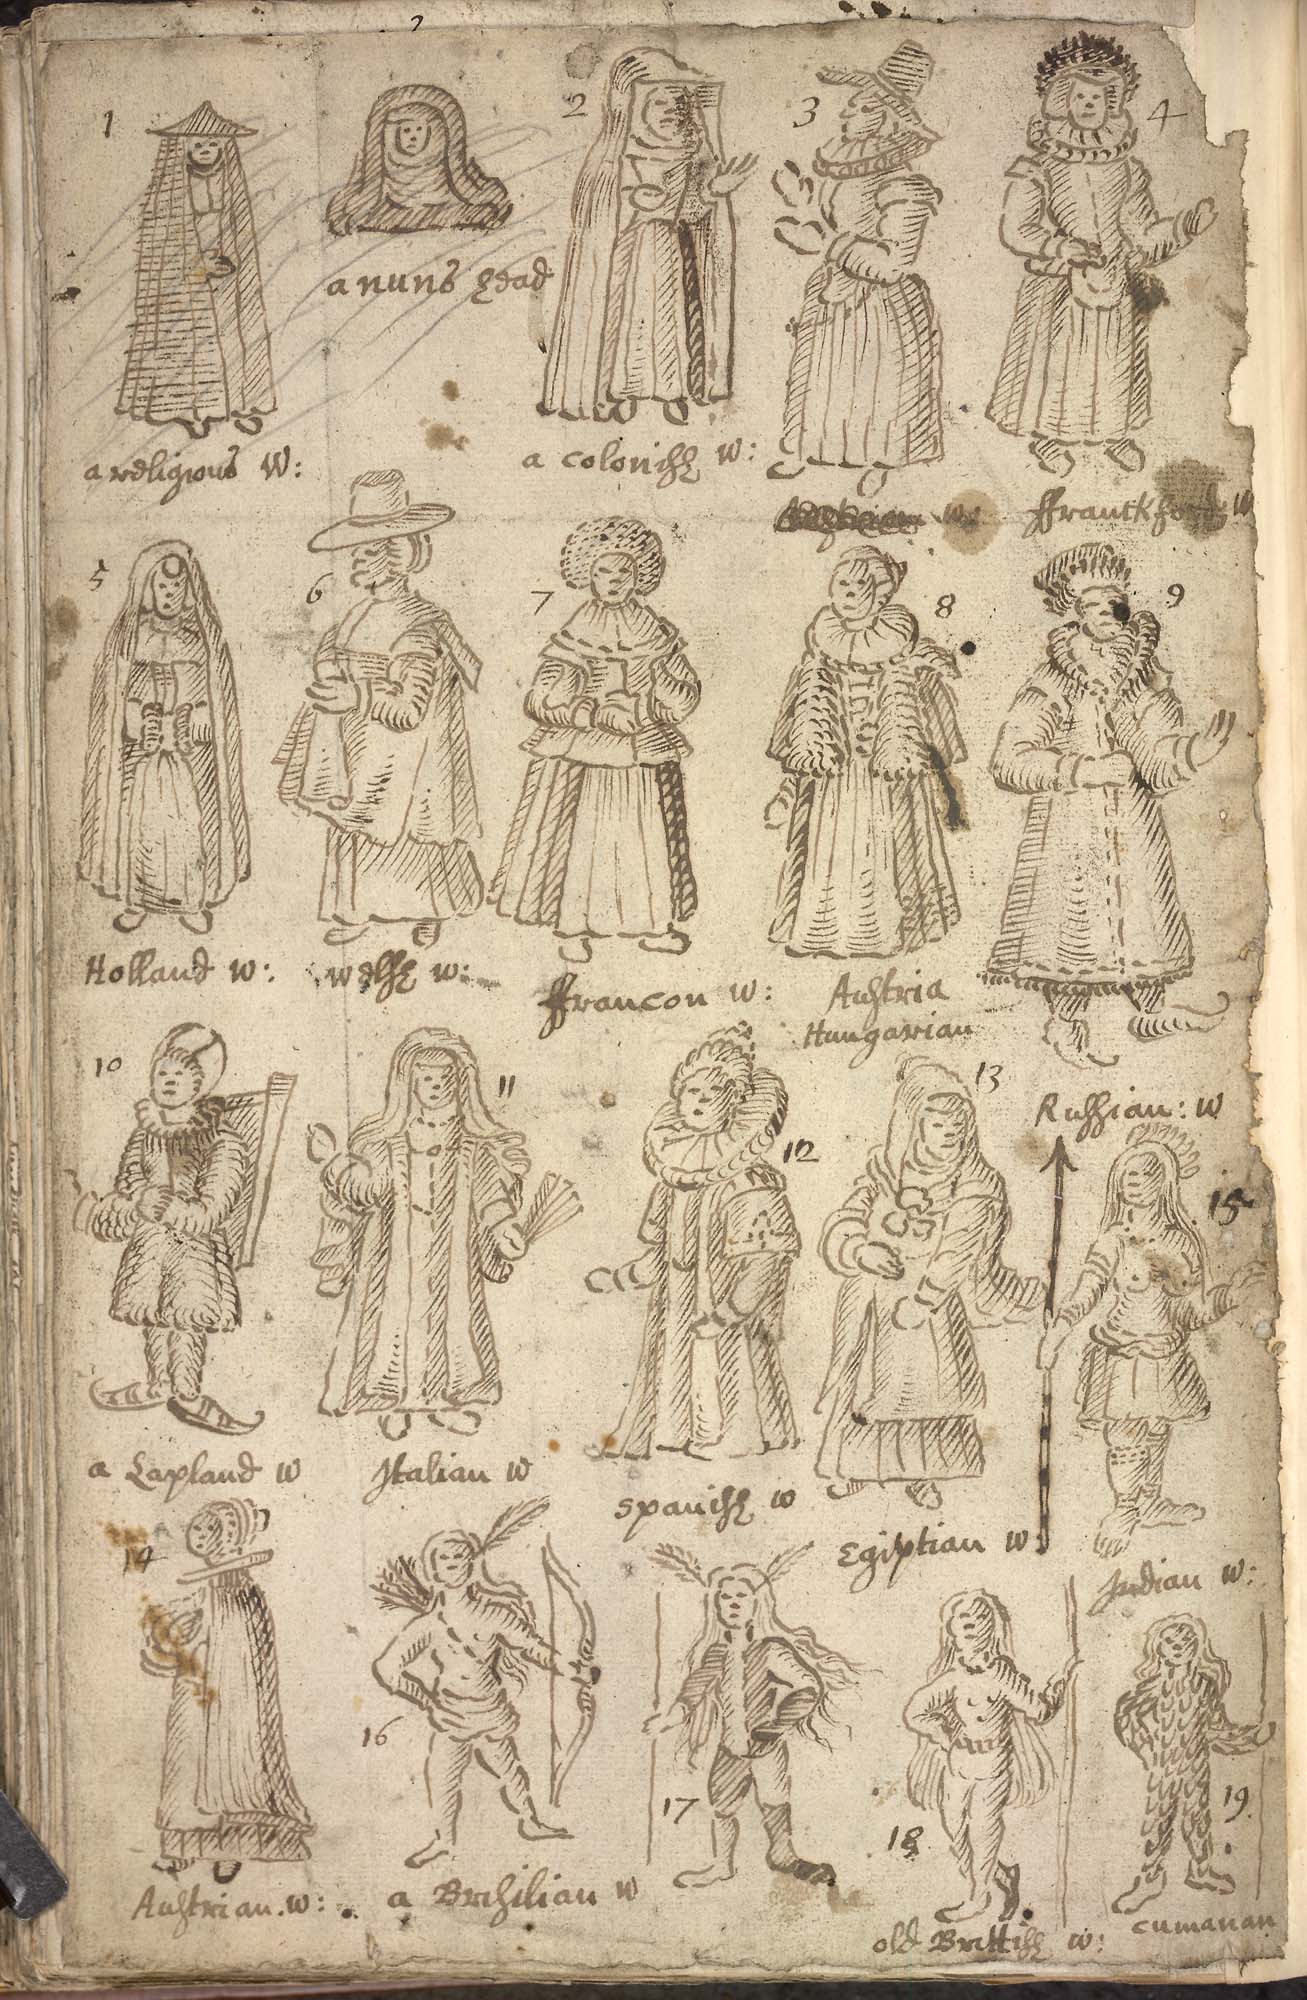 2
1
2
3
4
a nuns head
a religious W:
a colonish w:
w:
ffranckford W
5
6
7
8
9
Holland w:
welsh w:
ffrancon w:
Austria
Hungarian
Russian: w
10
11
12
13
15
a Lapland w
Italian w
spanish w
Egiptian w:
Indian w:
14
16
17
18
19
Austrian. w:
a Brasilian w
old Brittish w:
cumanan